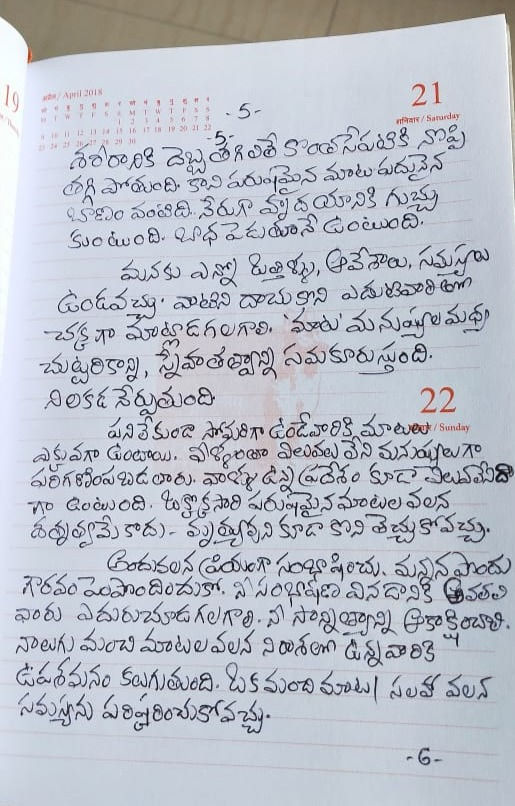 19
अप्रैल / April 2018
21
शनिवार / Saturday
-5-
శరీరానికి దెబ్బ తగిలితే కొంతసేపటికి నొప్పి
తగ్గి పోతుంది. కాని పరుషమైన మాట పదునైన
బాణం వంటిది. నేరుగా హృదయానికి గుచ్చు
కుంటుంది. బాధ పెడుతూనే ఉంటుంది.
మనకు ఎన్నో ఒత్తిళ్ళు, ఆవేశాలు, సమస్యలు
ఉండవచ్చు. వాటిని దాచుకొని ఎదుటివారితో
చక్కగా మాట్లాడగలగాలి. 'మాట' మనుష్యుల మధ్య
చుట్టరికాన్ని, స్నేహతత్వాన్ని సమకూరుస్తుంది.
నిలకడ నేర్పుతుంది
22
रविवार / Sunday
పనిలేకుండా సోమరిగా ఉండేవారికి మాటలు
ఎక్కువగా ఉంటాయి. వీళ్ళంతా విలువ లేని మనుష్యులుగా
పరిగణింపబడతారు. వాళ్ళు ఉన్న ప్రదేశం కూడా విలువలేనిదిగా
గా ఉంటుంది. ఒక్కొక్కసారి పరుషమైన మాటల వలన
శత్రుత్వమే కాదు - మృత్యువుని కూడా కొని తెచ్చుకోవచ్చు.
అందువలన ప్రియంగా సంభాషించు. మన్నన పొందు
గౌరవం పెంపొందించుకో. నీ సంభాషణం వినడానికి అవతలి
వారు ఎదురుచూడ గలగాలి. నీ సాన్నిత్యాన్ని ఆకాంక్షించాలి.
నాలుగు మంచి మాటల వలన నిరాశలో ఉన్నవారికి
ఉపశమనం కలుగుతుంది. ఒక మంచి మాట/ సలహా వలన
సమస్యను పరిష్కరించుకోవచ్చు.
-6-